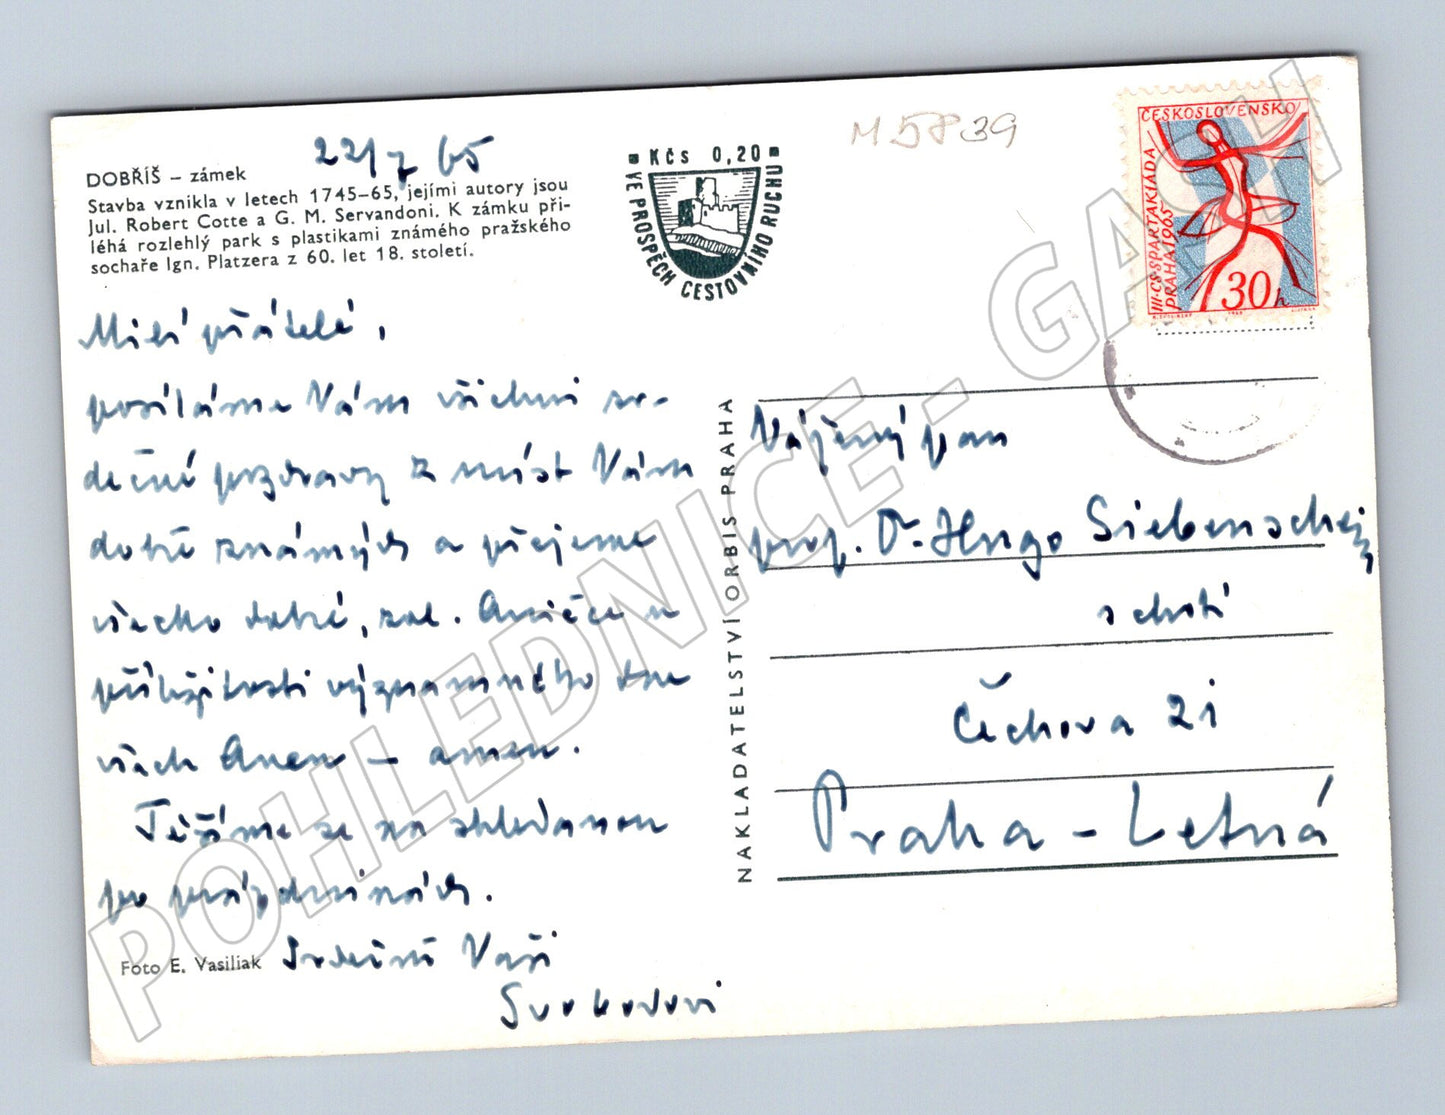 22/7 65
DOBŘÍŠ – zámek
Stavba vznikla v letech 1745–65, jejími autory jsou
Jul. Robert Cotte a G. M. Servandoni. K zámku při-
léhá rozlehlý park s plastikami známého pražského
sochaře Ign. Platzera z 60. let 18. století.
Milí přátelé,
posíláme Vám všichni sr-
dečné pozdravy z míst Vám
dobře známých a přejeme
všecko dobré, zvl. Aničce u
příležitosti významného dne
všech Anen – amen.
Těšíme se na shledanou
po prázdninách.
Srdečně Vaši
Svobodovi
Foto E. Vasiliak
KČs 0,20
VE PROSPĚCH CESTOVNÍHO RUCHU
M5839
ČESKOSLOVENSKO
III·CS·SPARTAKIÁDA
PRAHA 1965
30h
NAKLADATELSTVÍ ORBIS PRAHA
Vážený pan
prof. Dr. Hugo Siebenschein
s chotí
Čechova 21
Praha – Letná
POHLEDNICE - GASH